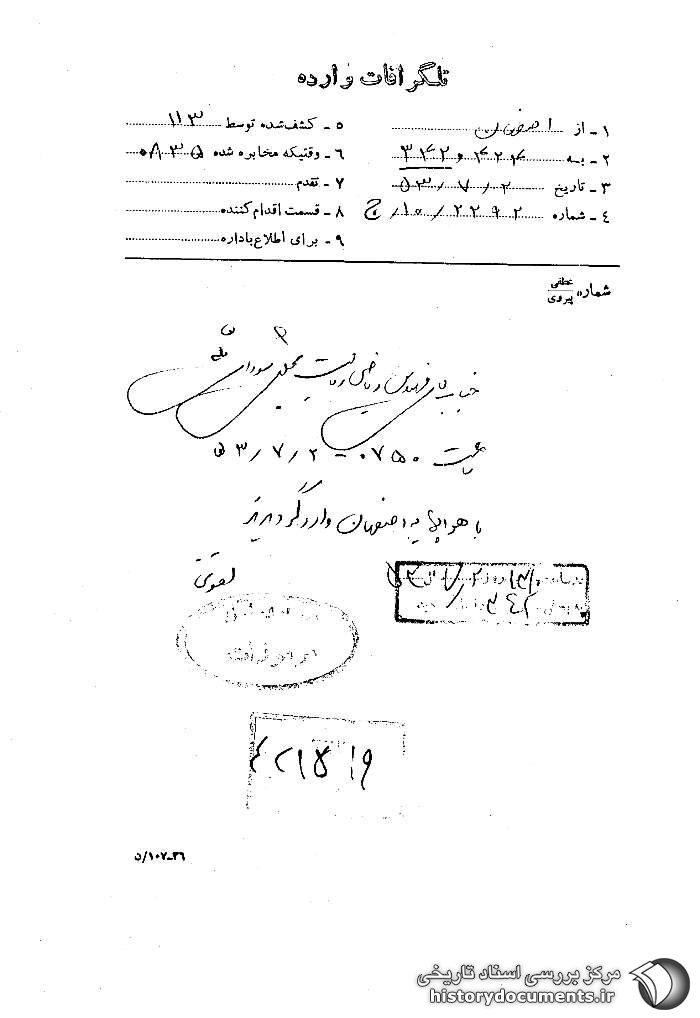 تلگرافات وارده
۱ـ از اصفهان
۲ـ به ۳۴۲ و ۴۲۴
۳ـ تاریخ ۵۳/۷/۲
۴ـ شماره ۱۰/۲۲۹۲/ج
۵ـ کشف‌شده توسط ۱۱۳
۶ـ وقتیکه مخابره شده ۰۸۳۵
۷ـ تقدم
۸ـ قسمت اقدام‌کننده
۹ـ برای اطلاع باداره
شماره عطفی پیروی
جناب آقای مهندس ریاضی ریاست مجلس شورای ملی
ساعت ۰۷۵۰ - ۵۳/۷/۲
با هواپیما به اصفهان وارد گردیدند
تقوی
۳۴۲
۴۲۱۵۱۹
۳۶ـ۱۰۷/ن
مرکز بررسی اسناد تاریخی
historydocuments.ir